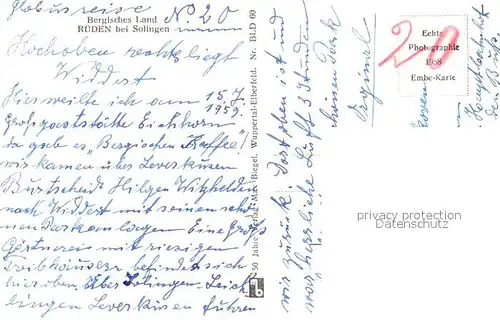 Globusreise No 20
Bergisches Land
RÜDEN bei Solingen
Hochoben rechts liegt
Widdert
Hier weilte ich am 15.7.
1959.
Großgaststätte Eichhorn
da gab es "Bergischen Kaffee"!
wir kamen über Leverkusen
Burtscheid Hilgen Witzhelden
nach Widdert mit seinen schö-
nen Parkanlagen Eine große
Gärtnerei mit riesigen
Treibhäusern befindet sich
hier oben. Über Solingen-Leich
lingen Leverkusen fuhren
50 Jahre Verlag Max Biegel, Wuppertal-Elberfeld. Nr. BLD 60
wir zurück. Dort oben ist und
war herrliche Luft 3 Stunden
Original
20
Echte
Photographie
1958
Embe-Karte
privacy protection
Datenschutz